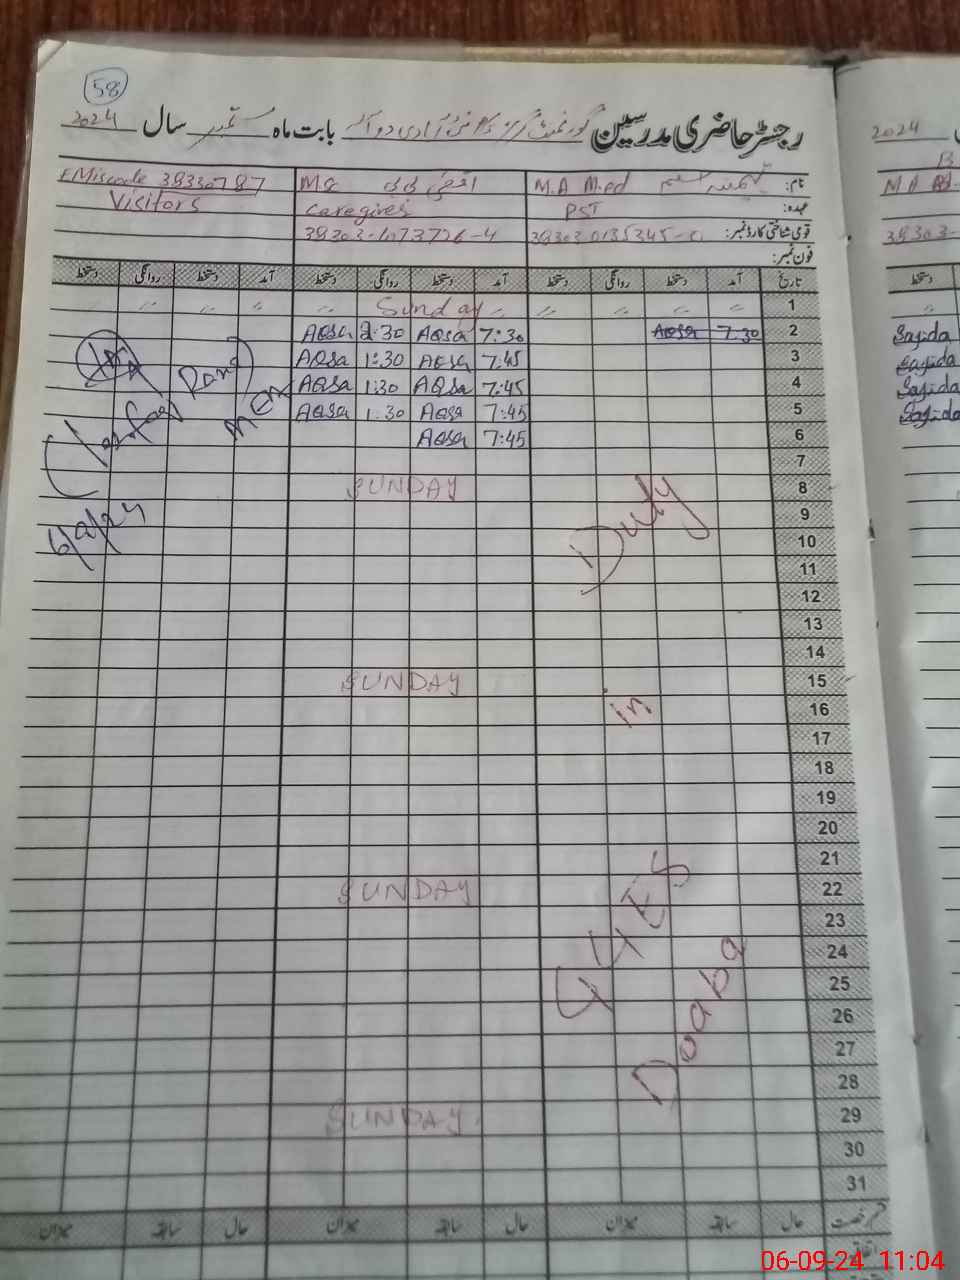 58
رجسٹر حاضری مدرسین گورنمنٹ گرلز آبادی دوآبہ بابت ماہ ستمبر سال 2024
2024
نام: M.A M.ed
اقصیٰ بی بی M.Sc
EMiscode 38330787
M A
عہدہ: PST
Caregives
Visitors
قومی شناختی کارڈ نمبر: 38303 0135345-0
38303-1073726-4
38303-
فون نمبر:
تاریخ آمد دستخط روانگی دستخط آمد دستخط روانگی دستخط آمد دستخط روانگی دستخط
دستخط
1 Sunday
2 7.30 AQSA 7:30 AQSA 2:30 AQSA
Sajida
3 7:45 AQSA 1:30 AQSA
Sajida
4 7:45 AQSA 1:30 AQSA
Sajida
5 7:45 AQSA 1:30 AQSA
Sajida
6 7:45 AQSA
MEA
6/9/24
7
8 SUNDAY
9
Duty
10
11
12
13
14
15 SUNDAY
16 in
17
18
19
20
21
22 SUNDAY
23
24 GGES
25
26
27 Doaba
28
29 SUNDAY
30
31
حال سابقہ میزان حال سابقہ میزان حال سابقہ میزان
06-09-24 11:04